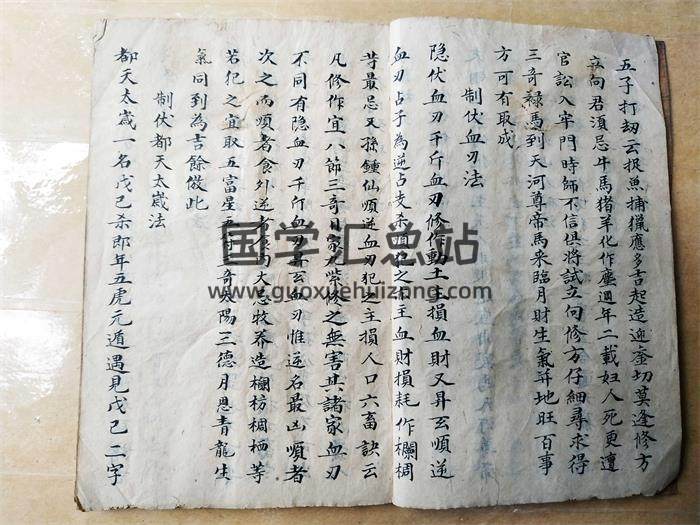 五子打刼云捉魚捕獵應多吉起造迎葬切莫逢修方
向君湏忌牛馬猪羊化作塵週年二載婦人死更遭
官訟入牢門時師不信俱將試立向修方仔細尋求得
三奇祿馬到天河尊帝馬來臨月財生氣幷地旺百事
方可有取成
制伏血刃法
隐伏血刃千斤血刃修作動土主損血財又昇玄順逆
血刃占子為逆占支杀順犯之俱主血財損耗作欄椆
等最忌又孫鍾仙順逆血刃犯主損人口六畜訣云
凡修作宜八節三奇日家九紫修之無害其諸家血刃
不同有隐血刃千斤血刃昇玄血刃惟逆名最凶順者
次之內順者食外逆者食內大忌牧养造欄枋椆栖等
若犯之宜取五富星三奇太陽三德月恩青龍生
氣同到為吉餘倣此
制伏都天太歲法
都天太歲一名戊己杀即年五虎元遁遇見戊己二字
国学汇总站
www.guoxuehuizong.com